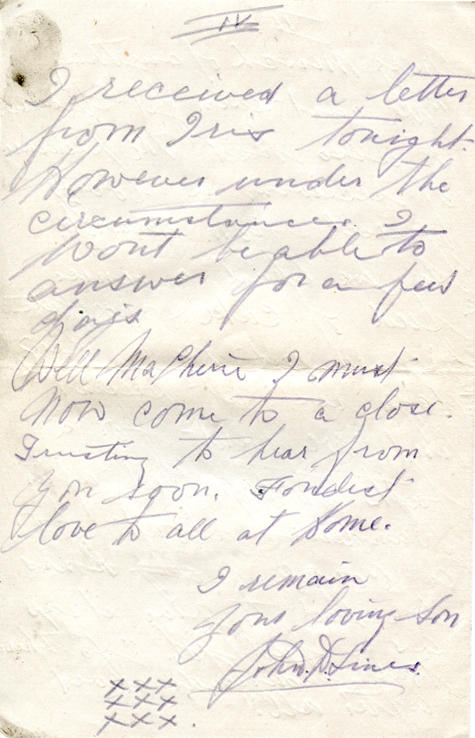 IV
I received a letter
from Iris tonight.
However under the
circumstances I
wont be able to
answer for a few
days
Well Ma Cherie I must
now come to a close.
Trusting to hear from
you soon. Fondest
love to all at home.
I remain
Your loving Son
John. D. Lines.
xxx
xxx
xxx.